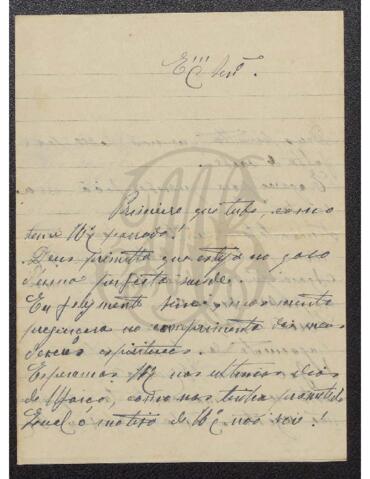 Ex Snr.
Primeiro que tudo, como
tem Vcê passado?
Deus permitta que esteja no goso
d'uma perfeita saude.
Eu felizmente
no cumprimento dos meus
deveres espirituaes.
Esperamos Vcê nos ultimos dias
de Março, como nos tinha promettido
Qual é o motivo de Vcê não vir!